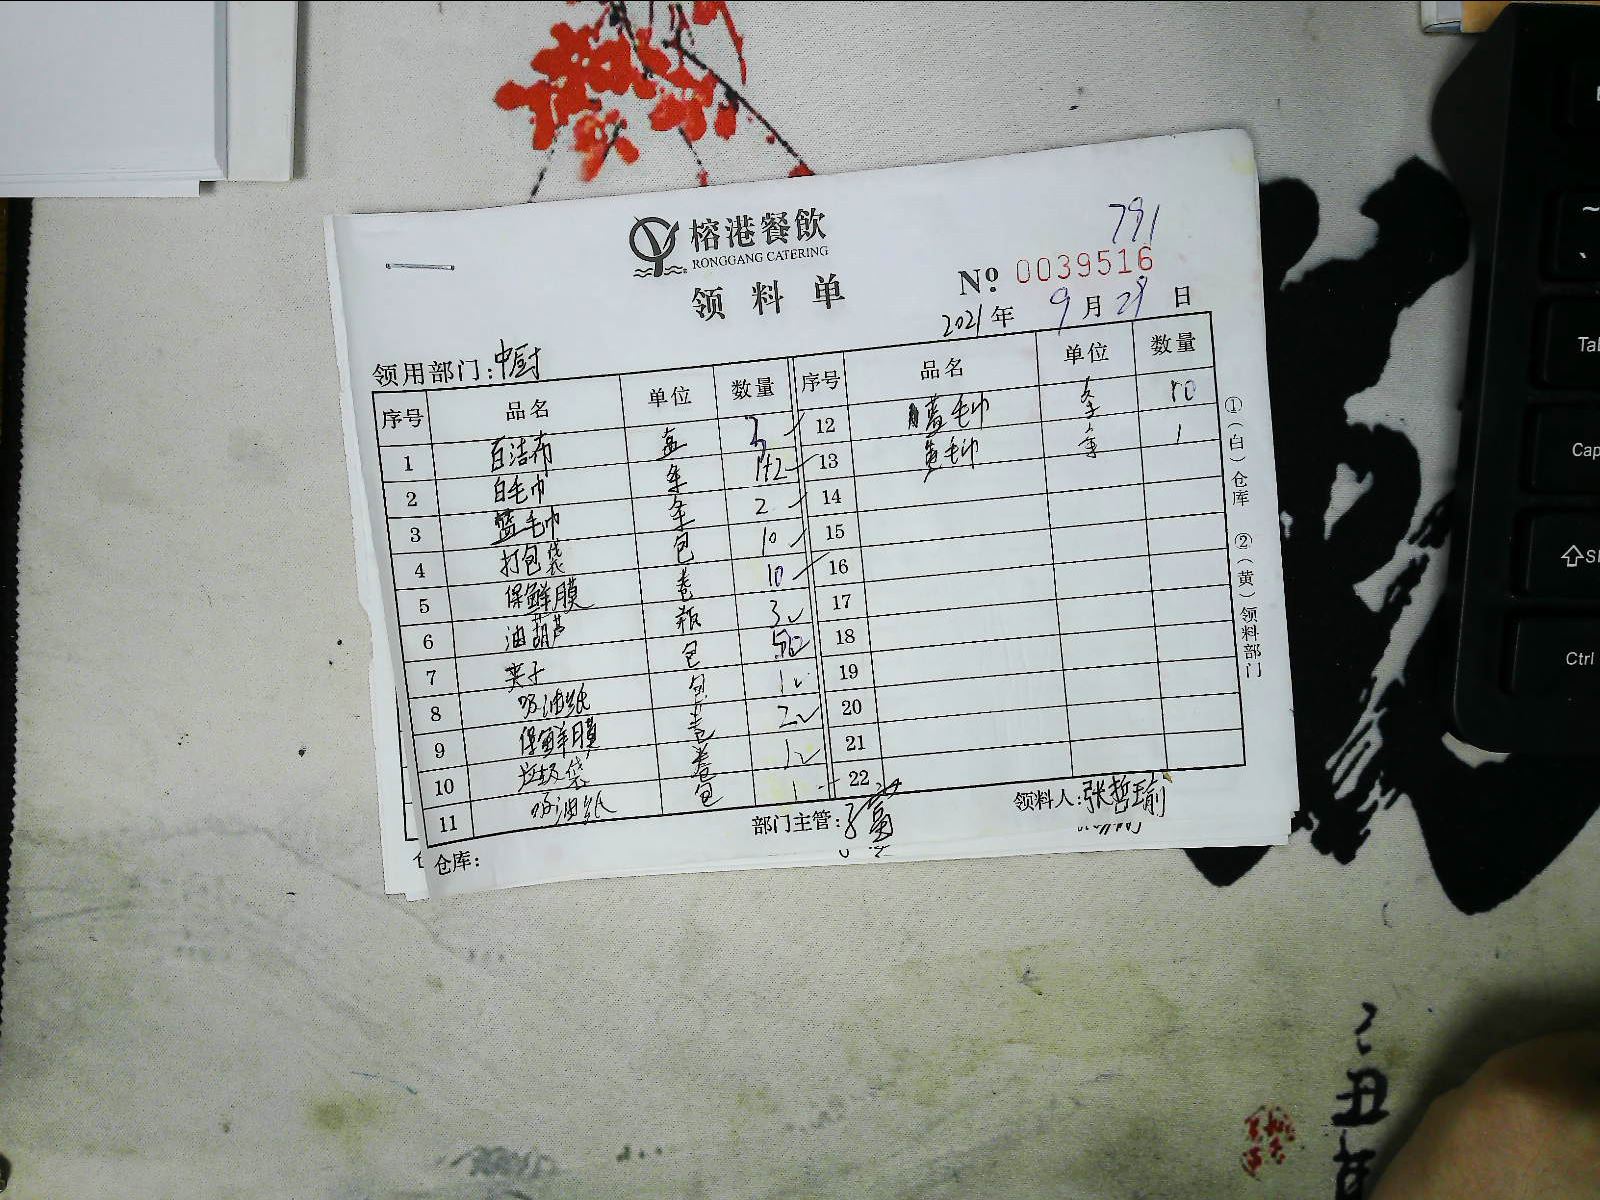 791
榕港餐飲
RONGGANG CATERING
领料单
№ 0039516
2021年 9月 29日
领用部门:中厨
序号 品名 单位 数量 序号 品名 单位 数量
1 百洁布 盒 3 12 蓝毛巾 条 10
2 白毛巾 条 1+2 13 黄毛巾 条 1
3 蓝毛巾 条 2 14
4 打包袋 包 10 15
5 保鲜膜 卷 10 16
6 油葫芦 瓶 3 17
7 夹子 包 18
8 吸油纸 包 1 19
9 保鲜膜 卷 2 20
10 垃圾袋 卷 1 21
11 吸油纸 包 1 22
仓库: 部门主管: 领料人:张哲瑜
①(白)仓库 ②(黄)领料部门
Tab
Cap
Ctrl
丑